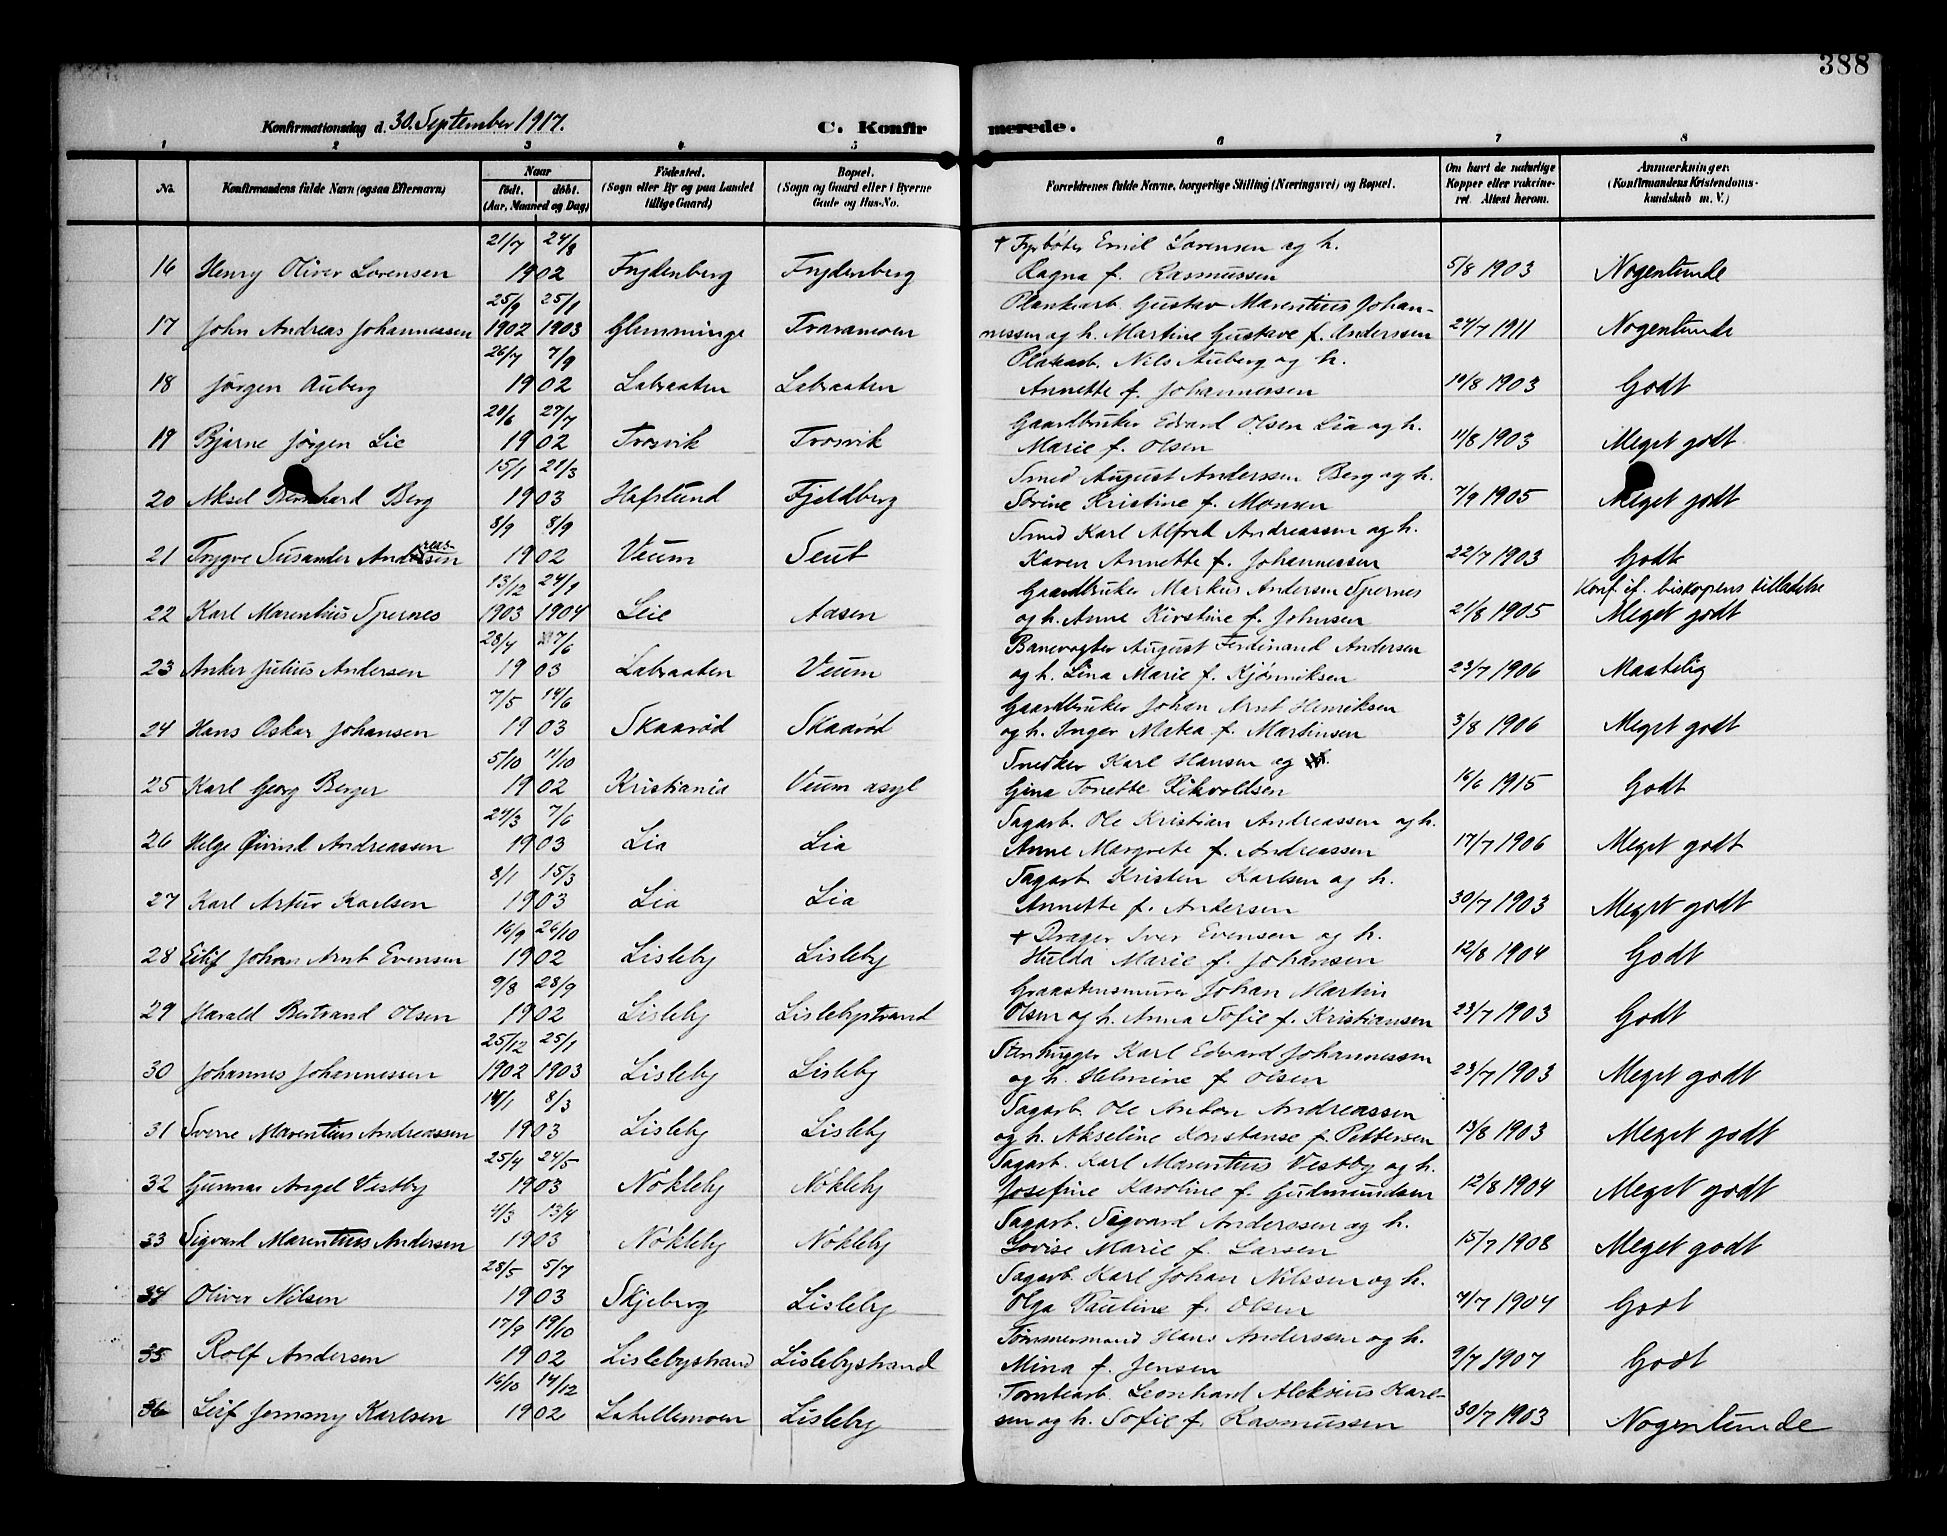 388
Konfirmationsdag d. 30. September 1917. C. Konfirmerede.
1 2 3 4 5 6 7 8
No. Konfirmandens fulde Navn (ogsaa Efternavn) Naar født. døbt. (Aar, Maaned og Dag) Fødested. (Sogn eller By og paa Landet tillige Gaard) Bopæl. (Sogn og Gaard eller i Byerne Gade og Hus-No. Forældrenes fulde Navne, borgerlige Stilling (Næringsvei) og Bopæl. Om havt de naturlige Kopper eller vakcineret. Attest herom. Anmærkninger. (Konfirmandens Kristendomskundskab m. V.)
21/7 24/8 + Fyrbøter Emil Lorensen og h.
16 Henry Oliver Lorensen 1902 Frydenberg Frydenberg Ragna f. Rasmussen 5/8 1903 Nogenlunde
25/9 25/1 Plankearb. Gustav Marentius Johan-
17 John Andreas Johannessen 1902 1903 Glemminge Traramoen nessen og h. Martine Gustave f. Anderssen 24/7 1911 Nogenlunde
26/7 7/9 Plankearb. Nils Auberg og h.
18 Jørgen Auberg 1902 Labraaten Labraaten Annette f. Johannessen 10/8 1903 Godt
20/6 27/7 Gaardbruker Edvard Olsen Lia og h.
19 Bjarne Jørgen Lie 1902 Trosvik Trosvik Marie f. Olsen 11/8 1903 Meget godt
15/1 21/3 Smed August Anderssen Berg og h.
20 Aksel Bernhard Berg 1903 Hafslund Fjeldberg Sorine Kristine f. Monsen 7/9 1905 Meget godt
8/9 8/9 Smed Karl Alfred Andreassen og h.
21 Trygve Susander Andreassen 1902 Veum Seut Karen Annette f. Johannessen 22/7 1903 Godt
13/12 24/1 Gaardbruker Markus Andersen Spernes Konf. if. biskopens tilladelse
22 Karl Marenthius Spernes 1903 1904 Leie Aasen og h. Anne Kirstine f. Johnsen 21/8 1905 Meget godt
28/4 7/6 Banevogter August Ferdinand Andersen
23 Anker Julius Andersen 1903 Labraaten Veum og h. Lina Marie f. Kjønniksen 23/7 1906 Maatelig
7/5 14/6 Gaardbruker Johan Arnt Henriksen
24 Hans Oskar Johansen 1903 Skaarød Skaarød og h. Inger Matea f. Martinsen 3/8 1906 Meget godt
5/10 11/10 Snedker Karl Hansen og
25 Karl Georg Berger 1902 Kristiania Veum asyl Gina Tonette Rikvoldsen 16/6 1915 Godt
24/3 7/6 Sagarb. Ole Kristian Andreassen og h.
26 Helge Øivind Andreassen 1903 Lia Lia Anne Margrete f. Andreassen 17/7 1906 Meget godt
8/1 15/3 Sagarb. Kristen Karlsen og h.
27 Karl Artur Karlsen 1903 Lia Lia Annette f. Andersen 30/7 1903 Meget godt
16/9 26/10 + Drager Iver Evensen og h.
28 Eilif Johan Arnt Evensen 1902 Lisleby Lisleby Hulda Marie f. Johansen 12/8 1904 Godt
9/8 28/9 Graastensmurer Johan Martin
29 Harald Bertrand Olsen 1902 Lisleby Lislebystrand Olsen og h. Anna Sofie f. Kristiansen 23/7 1903 Godt
25/12 25/1 Stenhugger Karl Edvard Johannessen
30 Johannes Johannessen 1902 1903 Lisleby Lisleby og h. Helmine f. Olsen 23/7 1903 Meget godt
14/1 8/3 Sagarb. Ole Anton Andreassen
31 Sverre Marentius Andreassen 1903 Lisleby Lisleby og h. Akseline Konstanse f. Pettersen 13/8 1903 Meget godt
25/4 24/5 Sagarb. Karl Marentius Vestby og h.
32 Gunnar Angel Vestby 1903 Nökleby Nökleby Josefine Karoline f. Gulmundsen 12/8 1904 Meget godt
4/3 13/4 Sagarb. Sigvard Anderssen og h.
33 Sigvard Marentius Andersen 1903 Nökleby Nökleby Lovise Marie f. Larsen 15/7 1908 Meget godt
28/5 5/7 Sagarb. Karl Johan Nilssen og h.
34 Oliver Nilsen 1903 Skjeberg Lisleby Olga Pauline f. Olsen 7/7 1904 Godt
17/9 19/10 Tømmermand Hans Anderssen og h.
35 Rolf Andersen 1902 Lislebystrand Lislebystrand Mina f. Jensen 9/7 1907 Godt
16/10 14/12 Tomtearb. Leonhard Aleksius Karl-
36 Leif Jemmy Karlsen 1902 Lahellemoen Lisleby sen og h. Sofie f. Rasmussen 30/7 1903 Nogenlunde